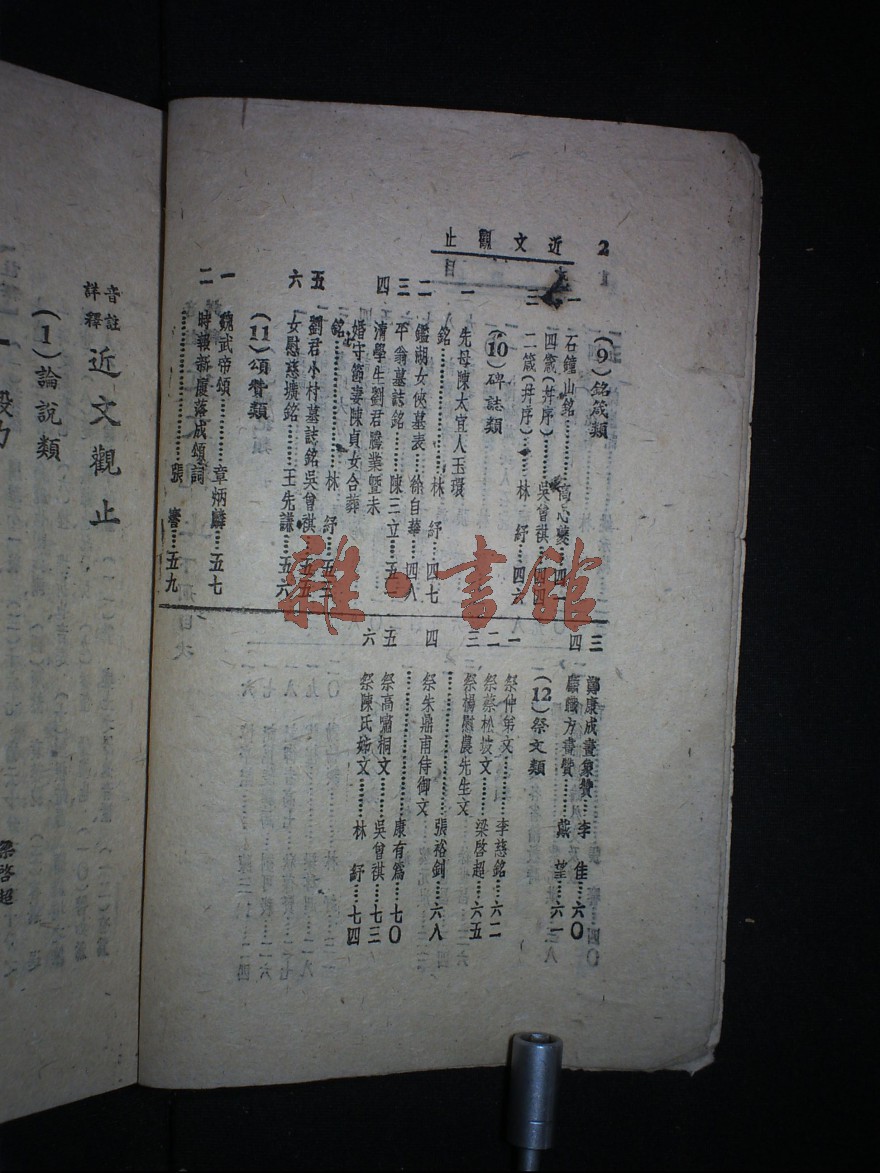 2
近文觀止
目
(9)銘箴類
一 石鐘山銘……高心夔…四
二 四箴(幷序)……吳曾祺…四四
三 二箴(幷序)……林　紓…四六
(10)碑誌類
一 先母陳太宜人玉環
銘……林　紓…四七
二 鑑湖女俠墓表……徐自華…四八
三 平翁墓誌銘……陳三立…五
四 清學生劉君騰業曁未
婚守節妻陳貞女合葬
銘……林　紓…五三
五 劉君小村墓誌銘吳曾祺…五五
六 女慰慈壙銘……王先謙…五六
(11)頌贊類
一 魏武帝頌……章炳麟…五七
二 時報新廈落成頌詞
……張　謇…五九
三 鄭康成畫象贊…李　佳…六〇
四 方書贊……戴　望…六一
(12)祭文類
一 祭仲弟文……李慈銘…六二
二 祭蔡松坡文……梁啓超…六五
三 祭楊慰農先生文
……張裕釗…六八
四 祭朱鼎甫侍御文
……康有爲…七〇
五 祭高嘯桐文……吳曾祺…七三
六 祭陳氏姊文……林　紓…七四
音註
詳釋
近文觀止
(1)論說類
一
梁啓超
雜·書館